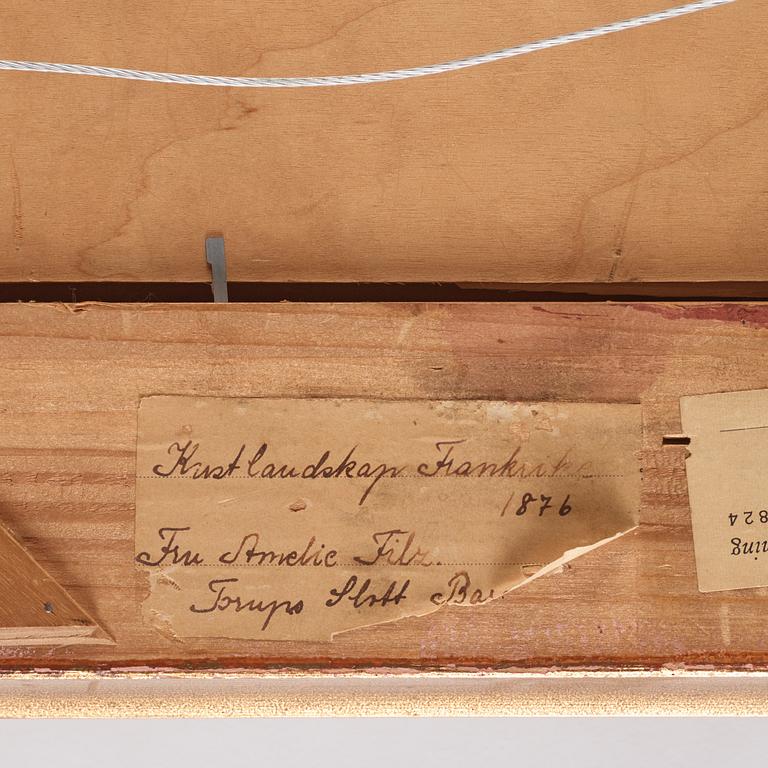 Kustlandskap Frankrike
1876
Fru Amelie Filr.
Torups Slott Ba
ning
824